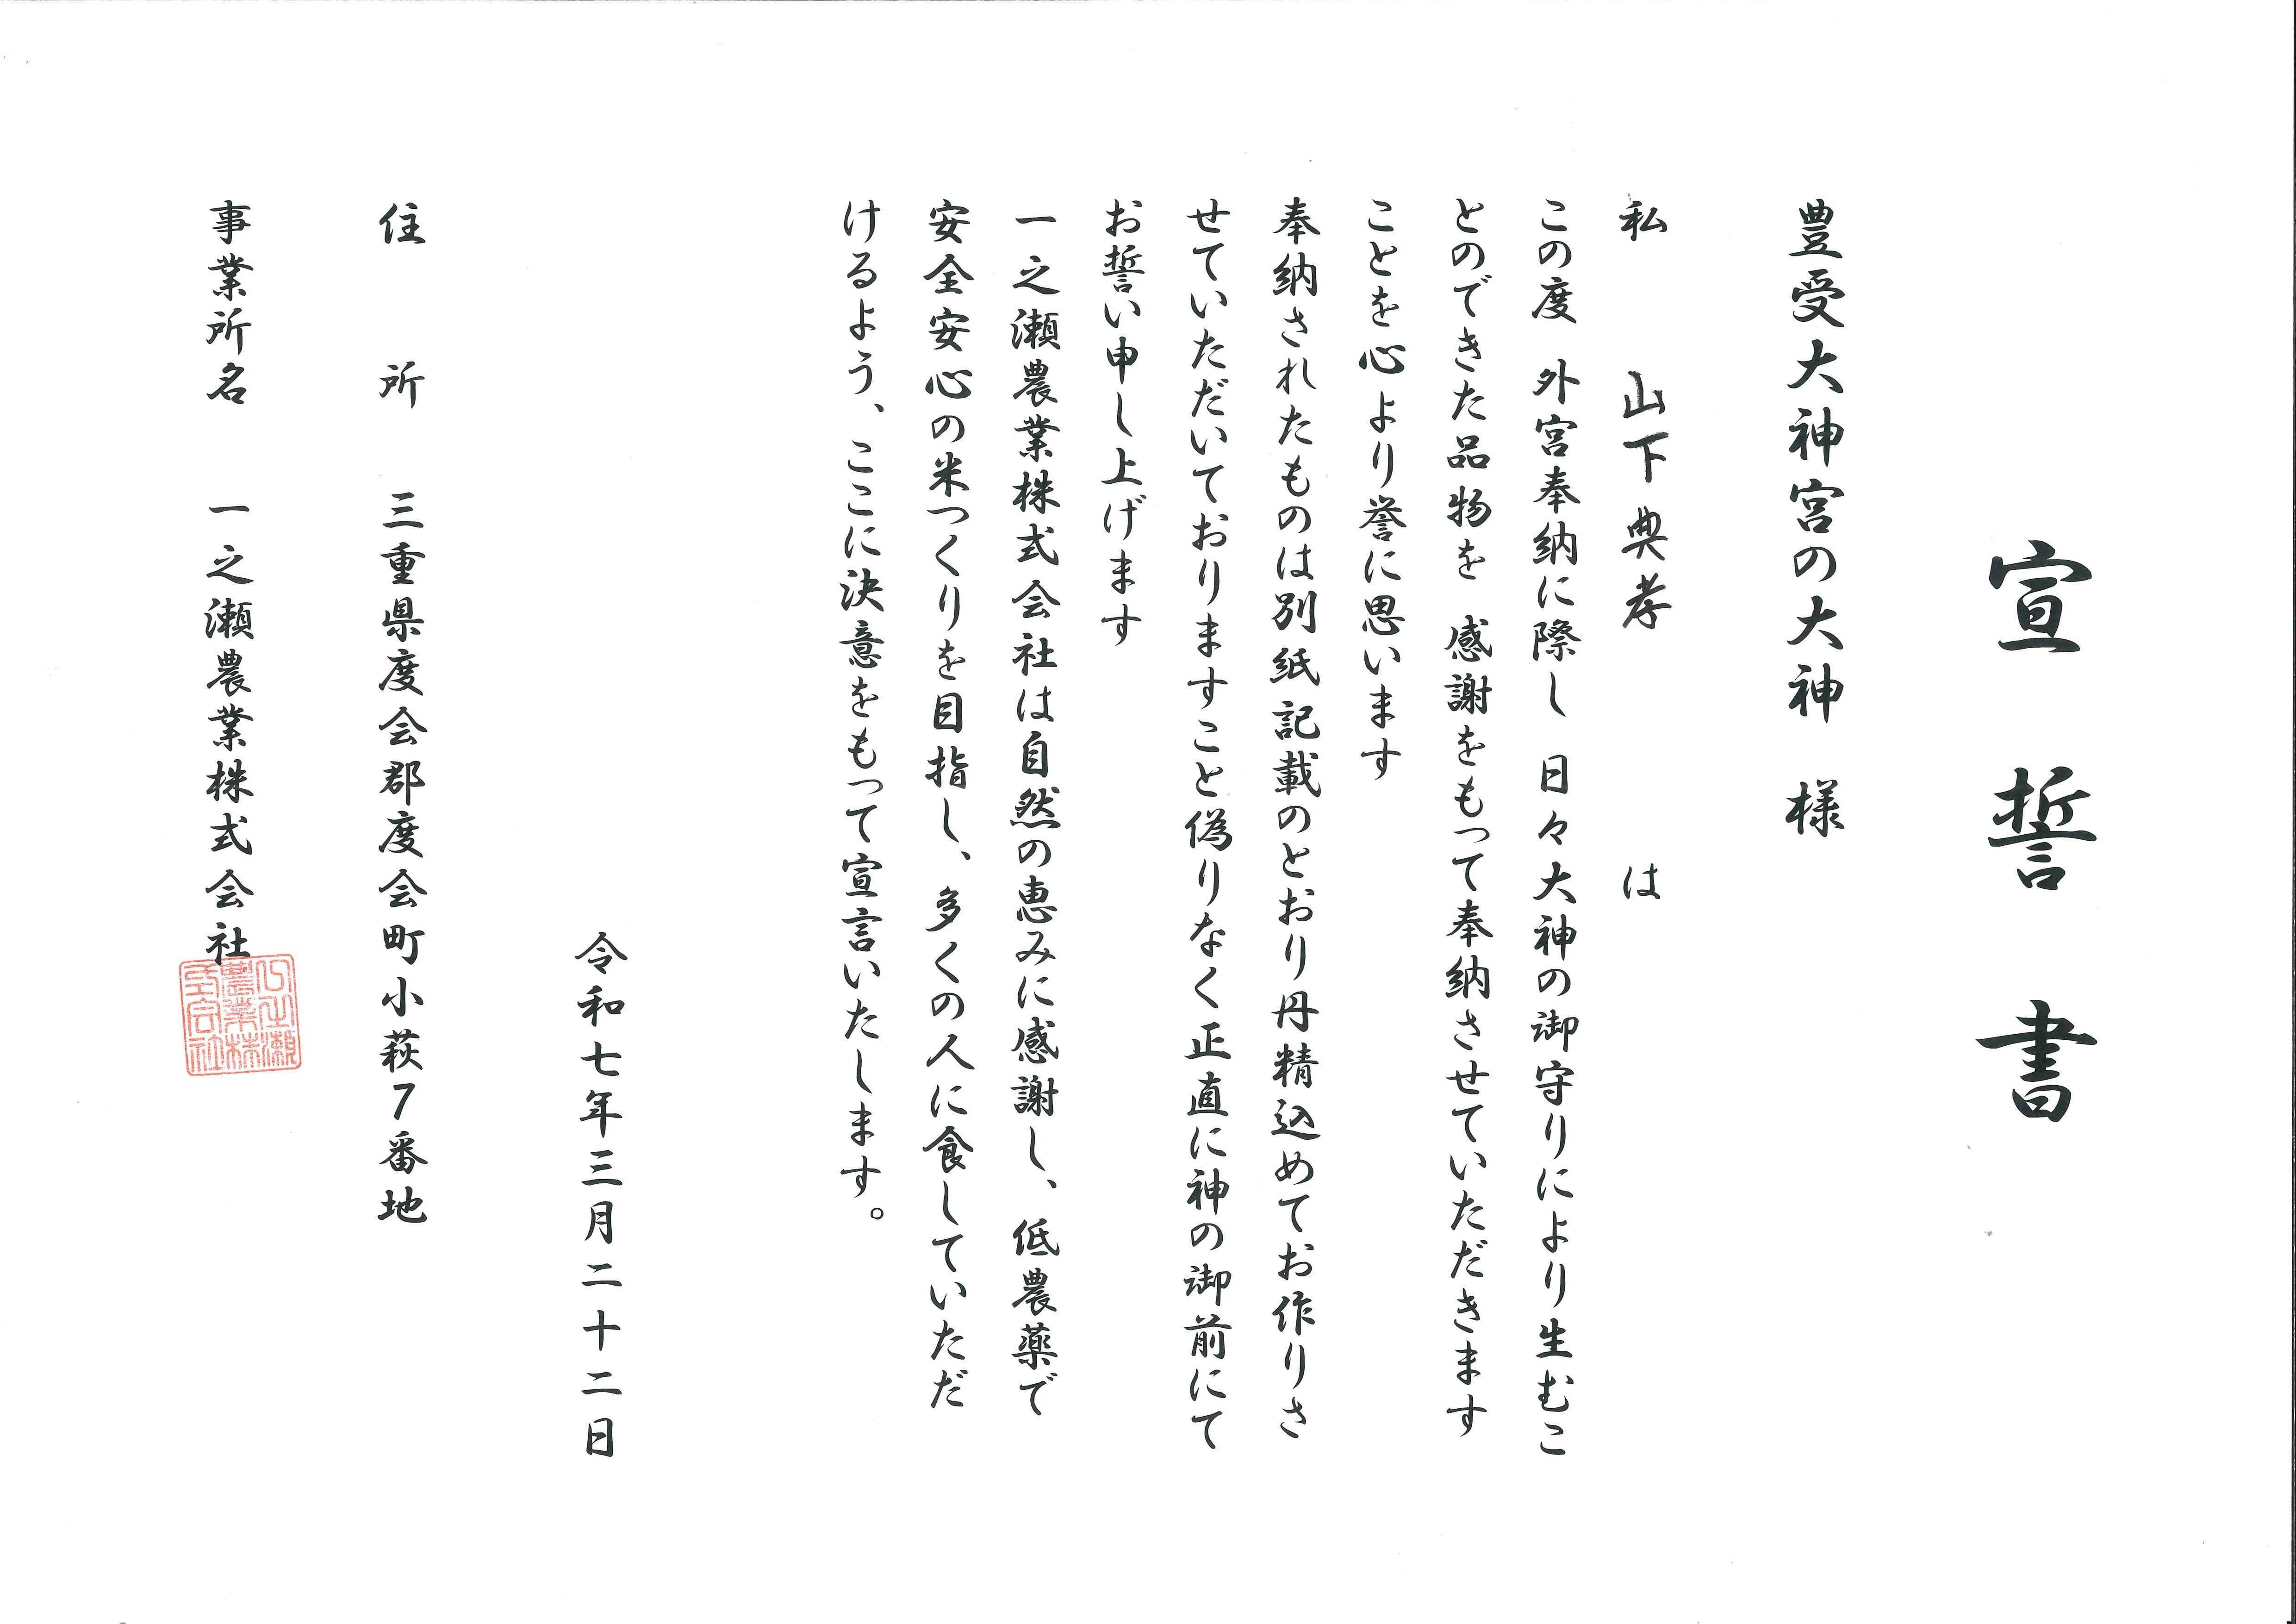 宣誓書
豊受大神宮の大神　様
私　山下典孝　は
この度　外宮奉納に際し　日々大神の御守りにより生むこ
とのできた品物を　感謝をもって奉納させていただきます
ことを心より誉に思います
奉納されたものは別紙記載のとおり丹精込めてお作りさ
せていただいておりますこと偽りなく正直に神の御前にて
お誓い申し上げます
一之瀬農業株式会社は自然の恵みに感謝し、低農薬で
安全安心の米つくりを目指し、多くの人に食していただ
けるよう、ここに決意をもって宣言いたします。
令和七年三月二十二日
住　所　三重県度会郡度会町小萩７番地
事業所名　一之瀬農業株式会社